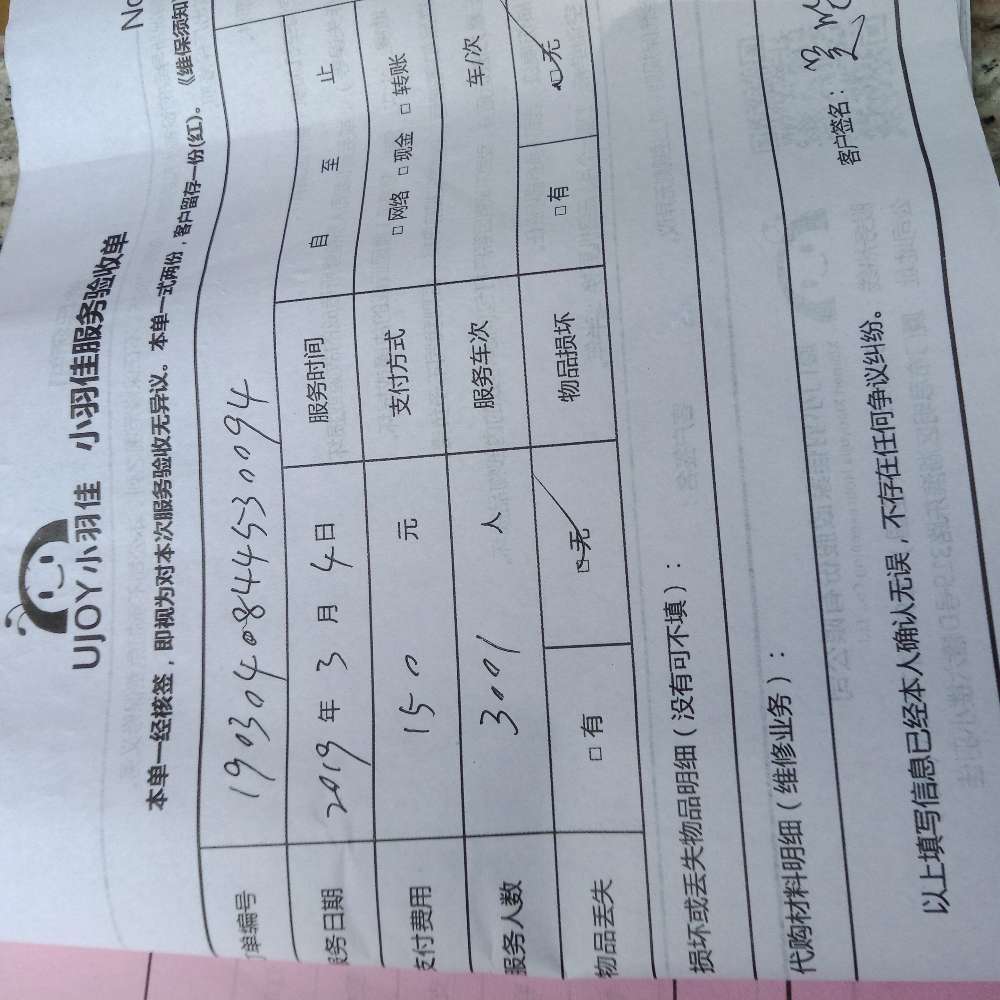 No
UJOY小羽佳 小羽佳服务验收单
本单一经核签，即视为对本次服务验收无异议。本单一式两份，客户留存一份(红)。《维保须知
单编号 1903040844530094
服务日期 2019年3月4日 服务时间 自 至 止
支付费用 150元 支付方式 □网络 □现金 □转账
服务人数 3001 人 服务车次 车/次
物品丢失 □有 □无 物品损坏 □有 □无
损坏或丢失物品明细（没有可不填）：
代购材料明细（维修业务）：
以上填写信息已经本人确认无误，不存在任何争议纠纷。 客户签名：